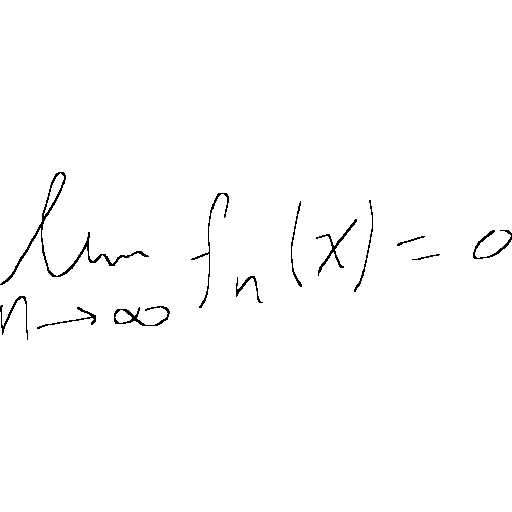 \lim_{n \to \infty} f_n(x) = 0